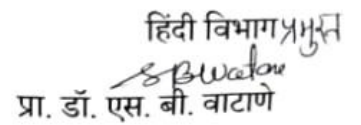 हिंदी विभाग प्रमुख
SBWatane
प्रा. डॉ. एस. बी. वाटाणे